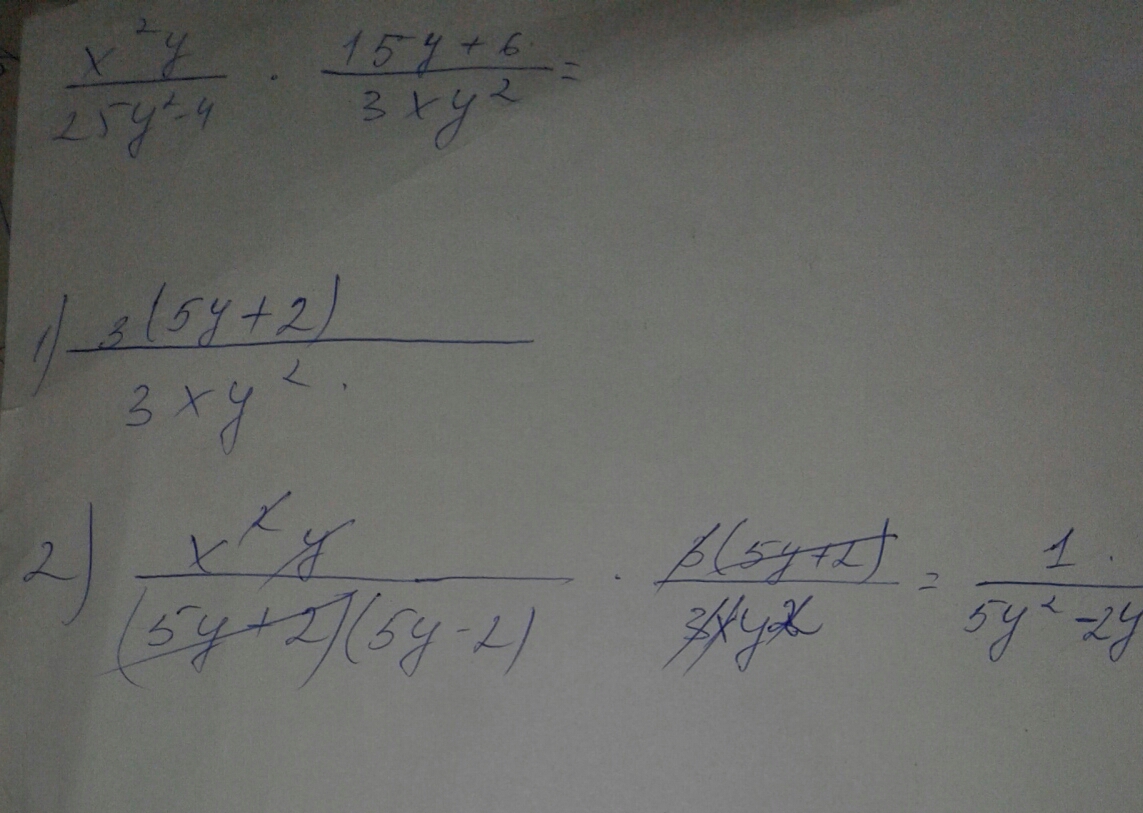 x²y / 25y²-4 · 15y+6 / 3xy² =
1) 3(5y+2) / 3xy².
2) x²y / (5y+2)(5y-2) · 3(5y+2) / 3xy² = 1 / 5y²-2y